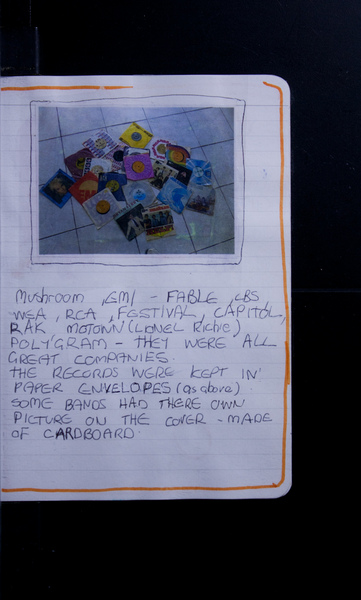 Mushroom, EMI - FABLE, CBS
WEA, RCA, FESTIVAL, CAPITOL,
RAK, MOTOWN (LIONEL RICHIE)
POLYGRAM - THEY WERE ALL
GREAT COMPANIES.
THE RECORDS WERE KEPT IN
PAPER ENVELOPES (as above).
SOME BANDS HAD THERE OWN
PICTURE ON THE COVER - MADE
OF CARDBOARD.